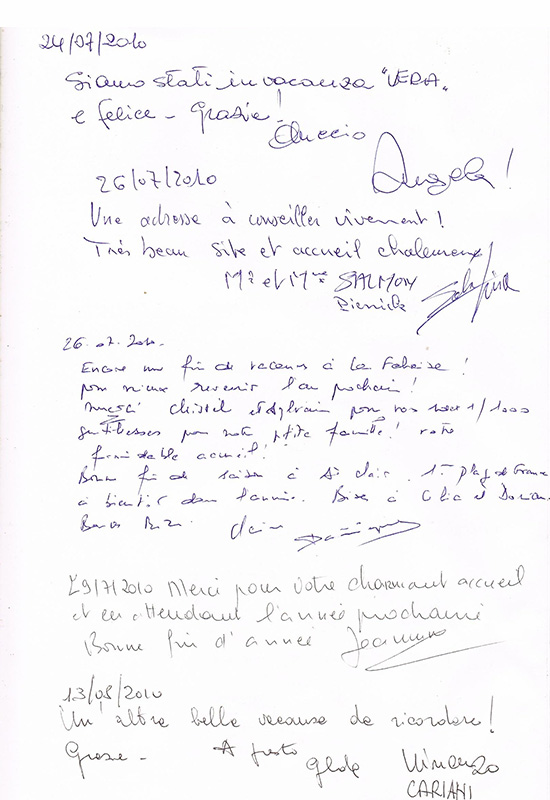 24/07/2010
Siamo stati in vacanza "VERA"
e felice - Grazie!
Angela!
26/07/2010
Une adresse à conseiller vivement!
Très beau site et accueil chaleureux
Mr et Mme SALMON
Pierrick
26.07.2010.
Encore une fin de vacances à la Falaise!
pour mieux revenir l'an prochain!
merci Christel et Sylvain pour vos 1/1000
gentillesses pour notre ptite famille! votre
formidable accueil!
Bonne fin de saison à St Clair. 1ère plage de France
à bientôt dans l'année. Bises à et Dorian
Claire
29/7/2010 Merci pour votre charmant accueil
et en attendant l'année prochaine
Bonne fin d'année Jeannine
13/08/2010
Un'altra bella vacanza da ricordare!
Grazie - A presto
Vincenzo
CARIANI